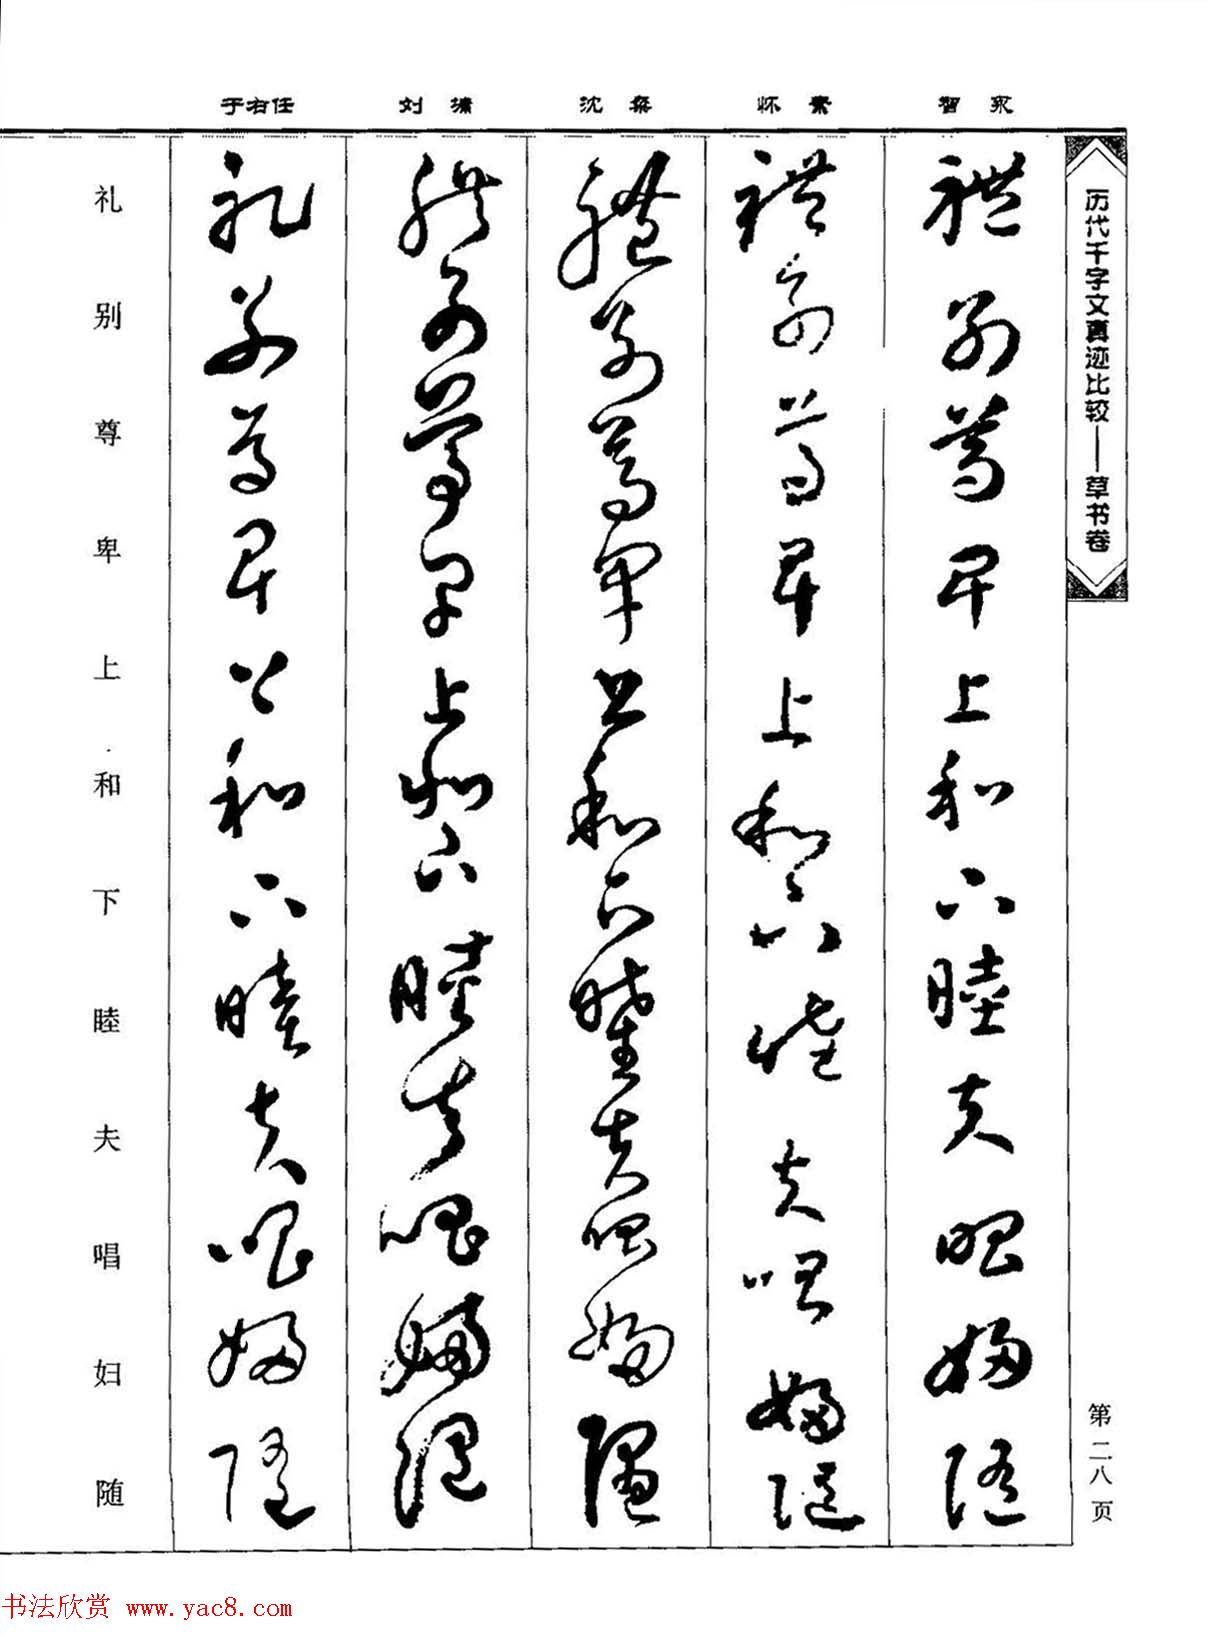 历代千字文真迹比较——草书卷
第二八页
智永
禮别尊卑上和下睦夫唱婦随
怀素
禮别尊卑上和下睦夫唱婦随
沈粲
禮别尊卑上和下睦夫唱婦随
刘潇
禮别尊卑上和下睦夫唱婦随
于右任
礼别尊卑上和下睦夫唱婦随
礼别尊卑上和下睦夫唱妇随
书法欣赏 www.yac8.com